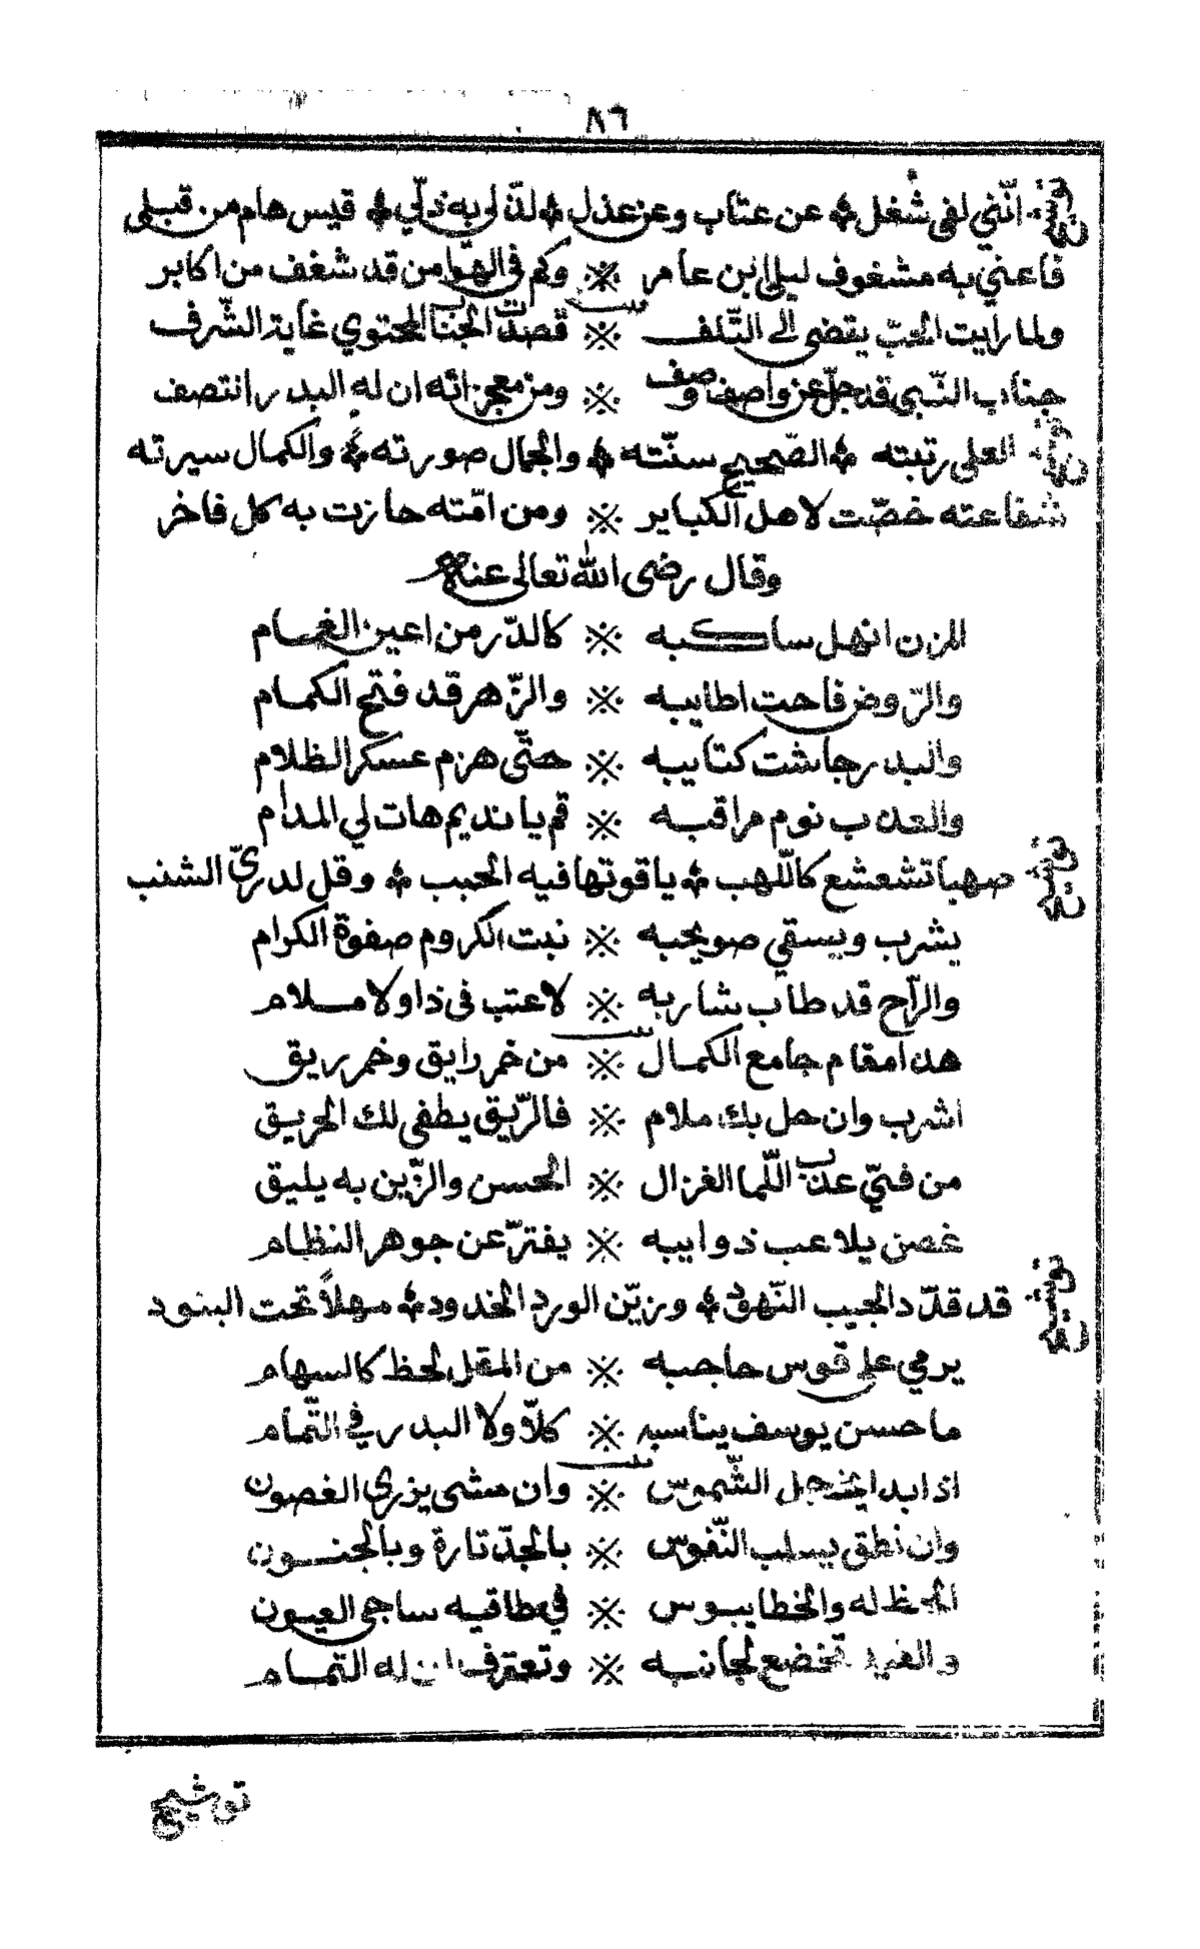 ٨٦
توشيح
انّني لفى شُغل ⁂ عن عتاب وعن عذل ⁂ لذّ لى به ذلّي ⁂ قيس هام من قبلى
فاعني به مشغوف ليلى ابن عامر ※ وكم فى الهوا من قد شغف من اكابر
بيت
ولما رأيت الحبّ يقضى الى التّلف ※ قصدت الجناب المحتوي غاية الشّرف
جناب النّبى قد جلّ عن واصف وصف ※ ومن معجزاته ان له البدر انتصف
توشيح
العلى رتبته ⁂ الصّحيح سنّته ⁂ والجمال صورته ⁂ والكمال سيرته
شفاعته خصّت لاهل الكباير ※ ومن امّته حازت به كل فاخر
وقال رضى الله تعالى عنه
المزن انهل ساكبه ※ كالدّر من اعين الغمام
والرّوض فاحت اطايبه ※ والزّهر قد فتح الكمام
والبدر جاشت كتايبه ※ حتّى هزم عسكر الظلام
والعذب نوم مراقبه ※ قم يا نديم هات لي المدام
توشيح
صهبا تشعشع كاللّهب ⁂ ياقوتها فيه الحبب ⁂ وقل لدريّ الشنب
يشرب ويسقي صويحبه ※ نبت الكروم صفوة الكرام
والرّاح قد طاب شاربه ※ لا عتب فى ذا ولا ملام
بيت
هذا مقام جامع الكمال ※ من خمر رايق وخمر ريق
اشرب وان حل بك ملام ※ فالرّيق يطفى لك الحريق
من فتيّ عذب اللّما الغزال ※ الحسن والزّين به يليق
غصن يلاعب ذوايبه ※ يفترّ عن جوهر النظام
توشيح
قد قلّد الجيب النّهود ⁂ وزيّن الورد الخدود ⁂ مهلاً تحت البنود
يرمي على قوس حاجبه ※ من المقل لحظ كالسهام
ما حسن يوسف يناسبه ※ كلاّ ولا البدر في التّمام
بيت
اذا بدا يخجل الشّموس ※ وان مشى يزري الغصون
وان نطق يسلب النّفوس ※ بالجدّ تارة وبالجنون
الحظ له والخطا يبوس ※ في طاقيه ساجى العيون
والغيد تخضع لجانبه ※ وتعترف ان له التمام
توشيح